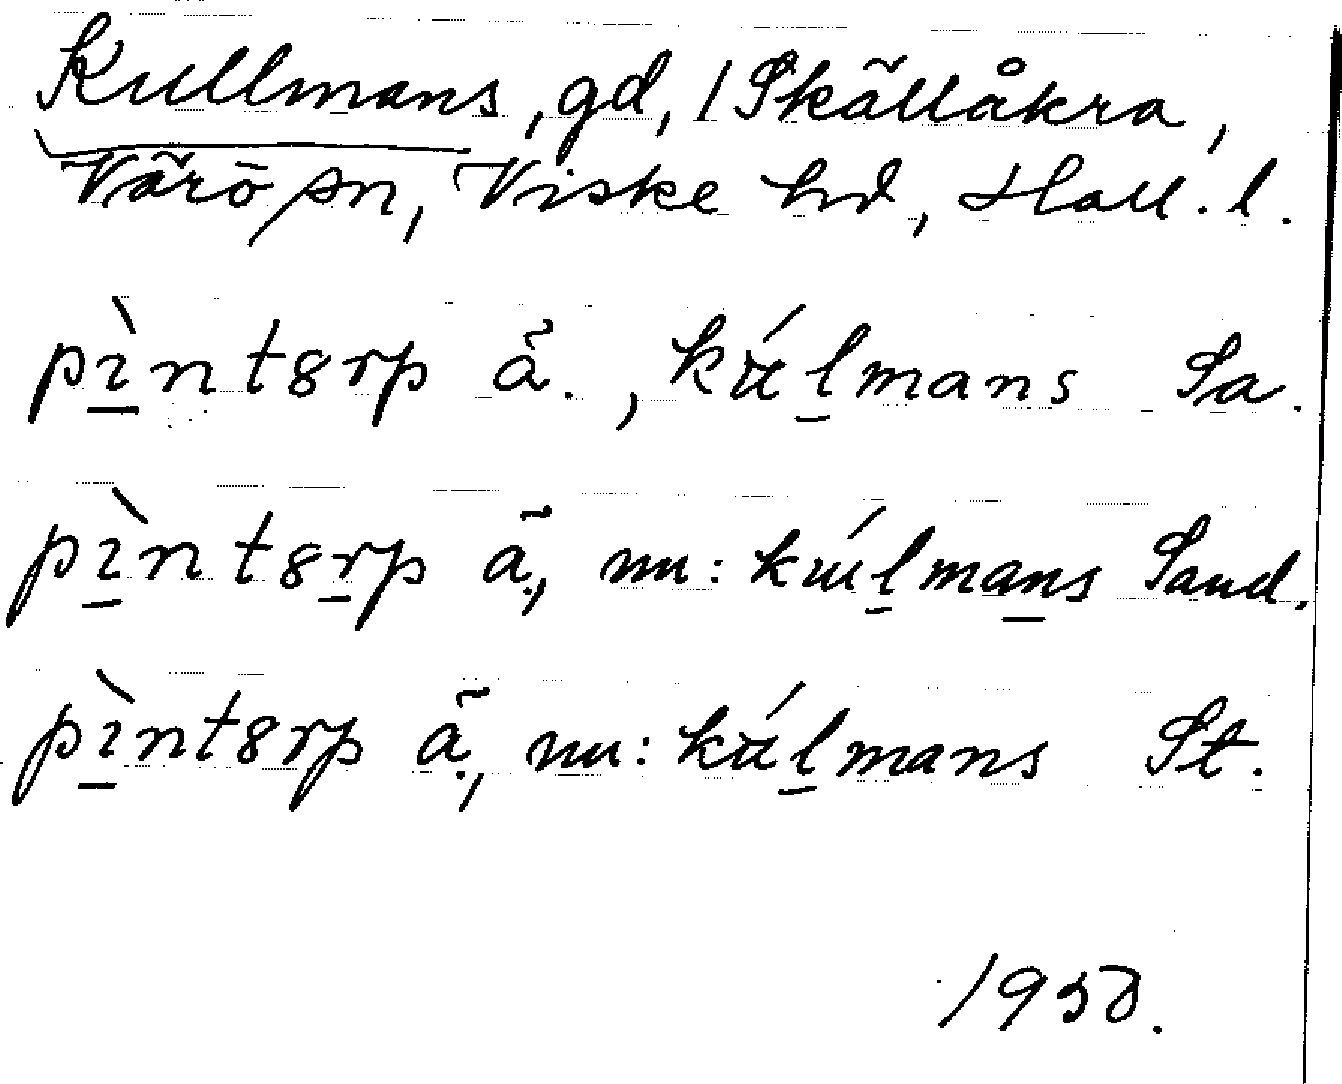 Kullmans, gd, 1 Skällåkra,
Värö sn, Viske hd, Hall. l.
pìnts̵rp ã., kúlmans Sa.
pìntərp ã, nu: kúlmans Sand.
pìntərp ã, nu: kúlmans St.
1950.